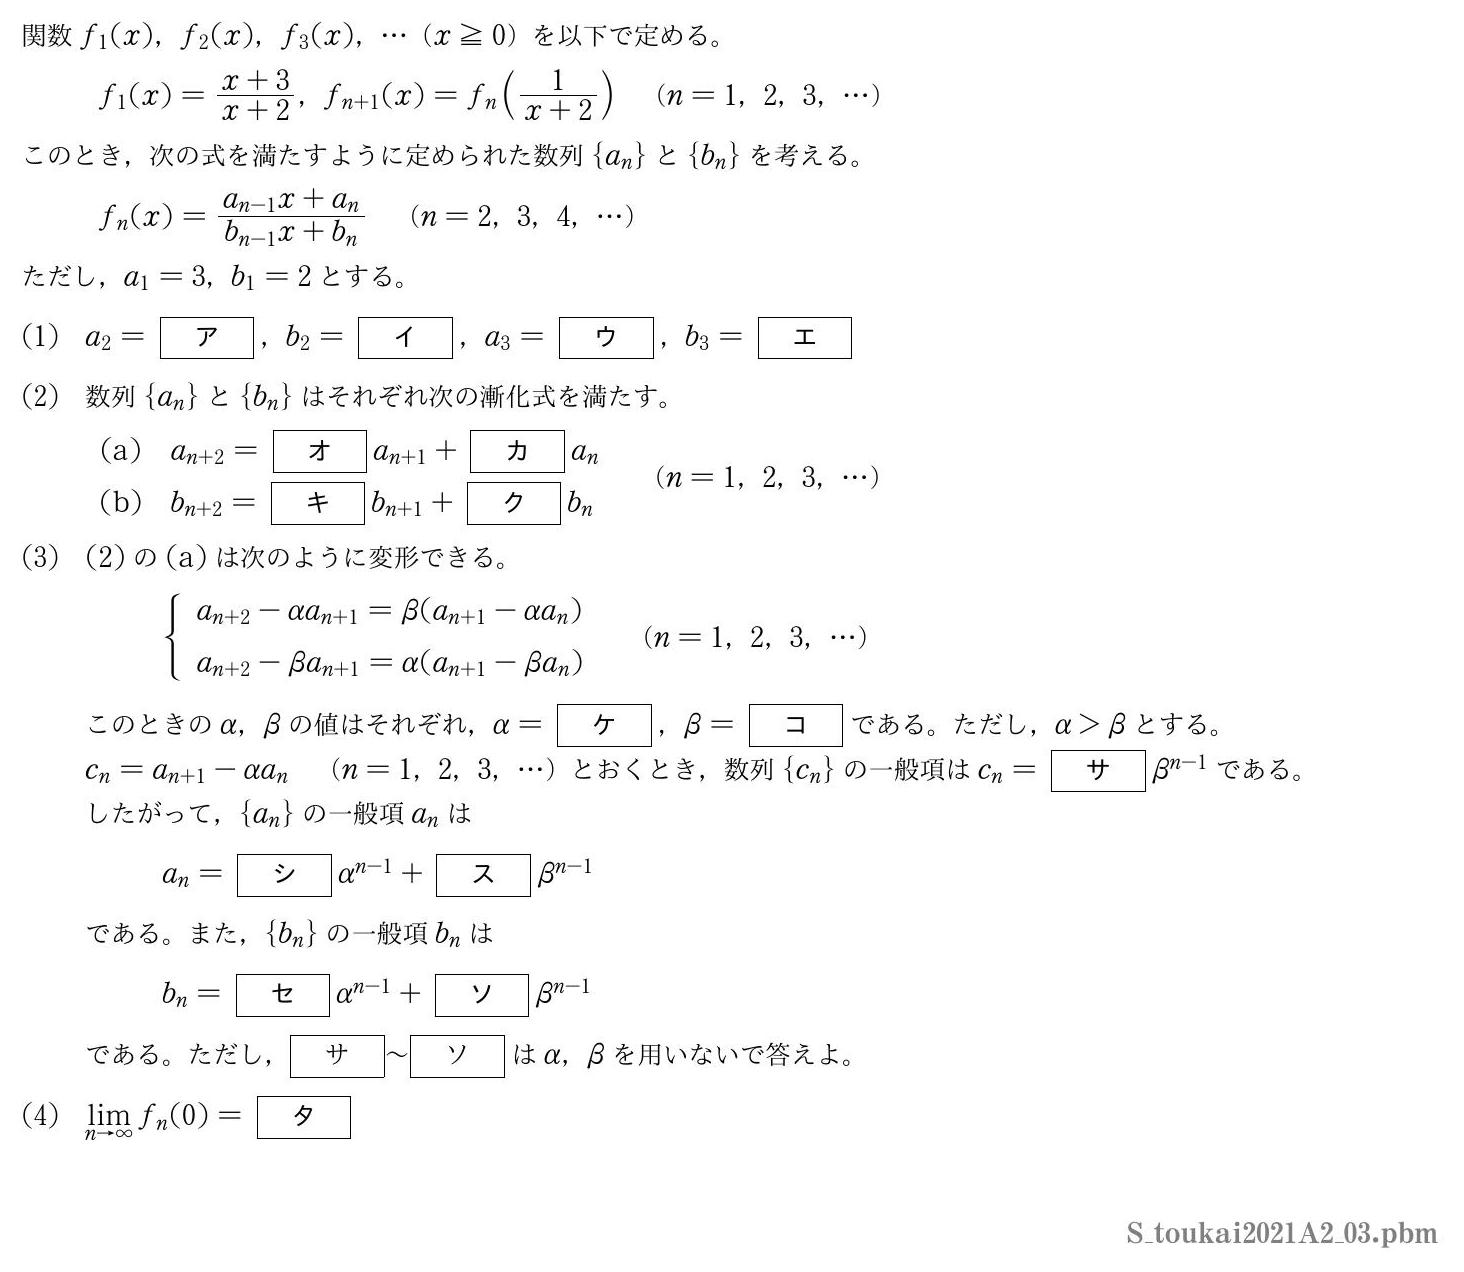 関数 f₁(x), f₂(x), f₃(x), … (x ≧ 0) を以下で定める。
f₁(x) = (x + 3)/(x + 2), fₙ₊₁(x) = fₙ(1/(x + 2)) (n = 1, 2, 3, …)
このとき，次の式を満たすように定められた数列 {aₙ} と {bₙ} を考える。
fₙ(x) = (aₙ₋₁x + aₙ)/(bₙ₋₁x + bₙ) (n = 2, 3, 4, …)
ただし，a₁ = 3, b₁ = 2 とする。
(1) a₂ = ア, b₂ = イ, a₃ = ウ, b₃ = エ
(2) 数列 {aₙ} と {bₙ} はそれぞれ次の漸化式を満たす。
(a) aₙ₊₂ = オ aₙ₊₁ + カ aₙ
(n = 1, 2, 3, …)
(b) bₙ₊₂ = キ bₙ₊₁ + ク bₙ
(3) (2) の (a) は次のように変形できる。
aₙ₊₂ − αaₙ₊₁ = β(aₙ₊₁ − αaₙ)
(n = 1, 2, 3, …)
aₙ₊₂ − βaₙ₊₁ = α(aₙ₊₁ − βaₙ)
このときの α, β の値はそれぞれ，α = ケ, β = コ である。ただし，α > β とする。
cₙ = aₙ₊₁ − αaₙ (n = 1, 2, 3, …) とおくとき，数列 {cₙ} の一般項は cₙ = サ βⁿ⁻¹ である。
したがって，{aₙ} の一般項 aₙ は
aₙ = シ αⁿ⁻¹ + ス βⁿ⁻¹
である。また，{bₙ} の一般項 bₙ は
bₙ = セ αⁿ⁻¹ + ソ βⁿ⁻¹
である。ただし， サ ～ ソ は α, β を用いないで答えよ。
(4) lim n→∞ fₙ(0) = タ
S_toukai2021A2_03.pbm